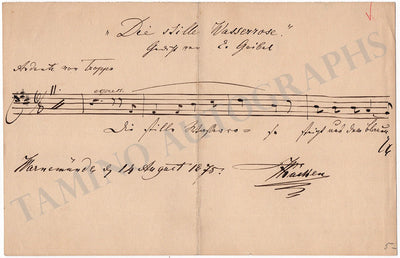 "Die stille Wasserrose."
Gedicht von E. Geibel
Andante non troppo
express.
Die stille Wasserro - se steigt aus dem blauen
Warnemünde d. 14 August 1875.
5-
TAMINO AUTOGRAPHS